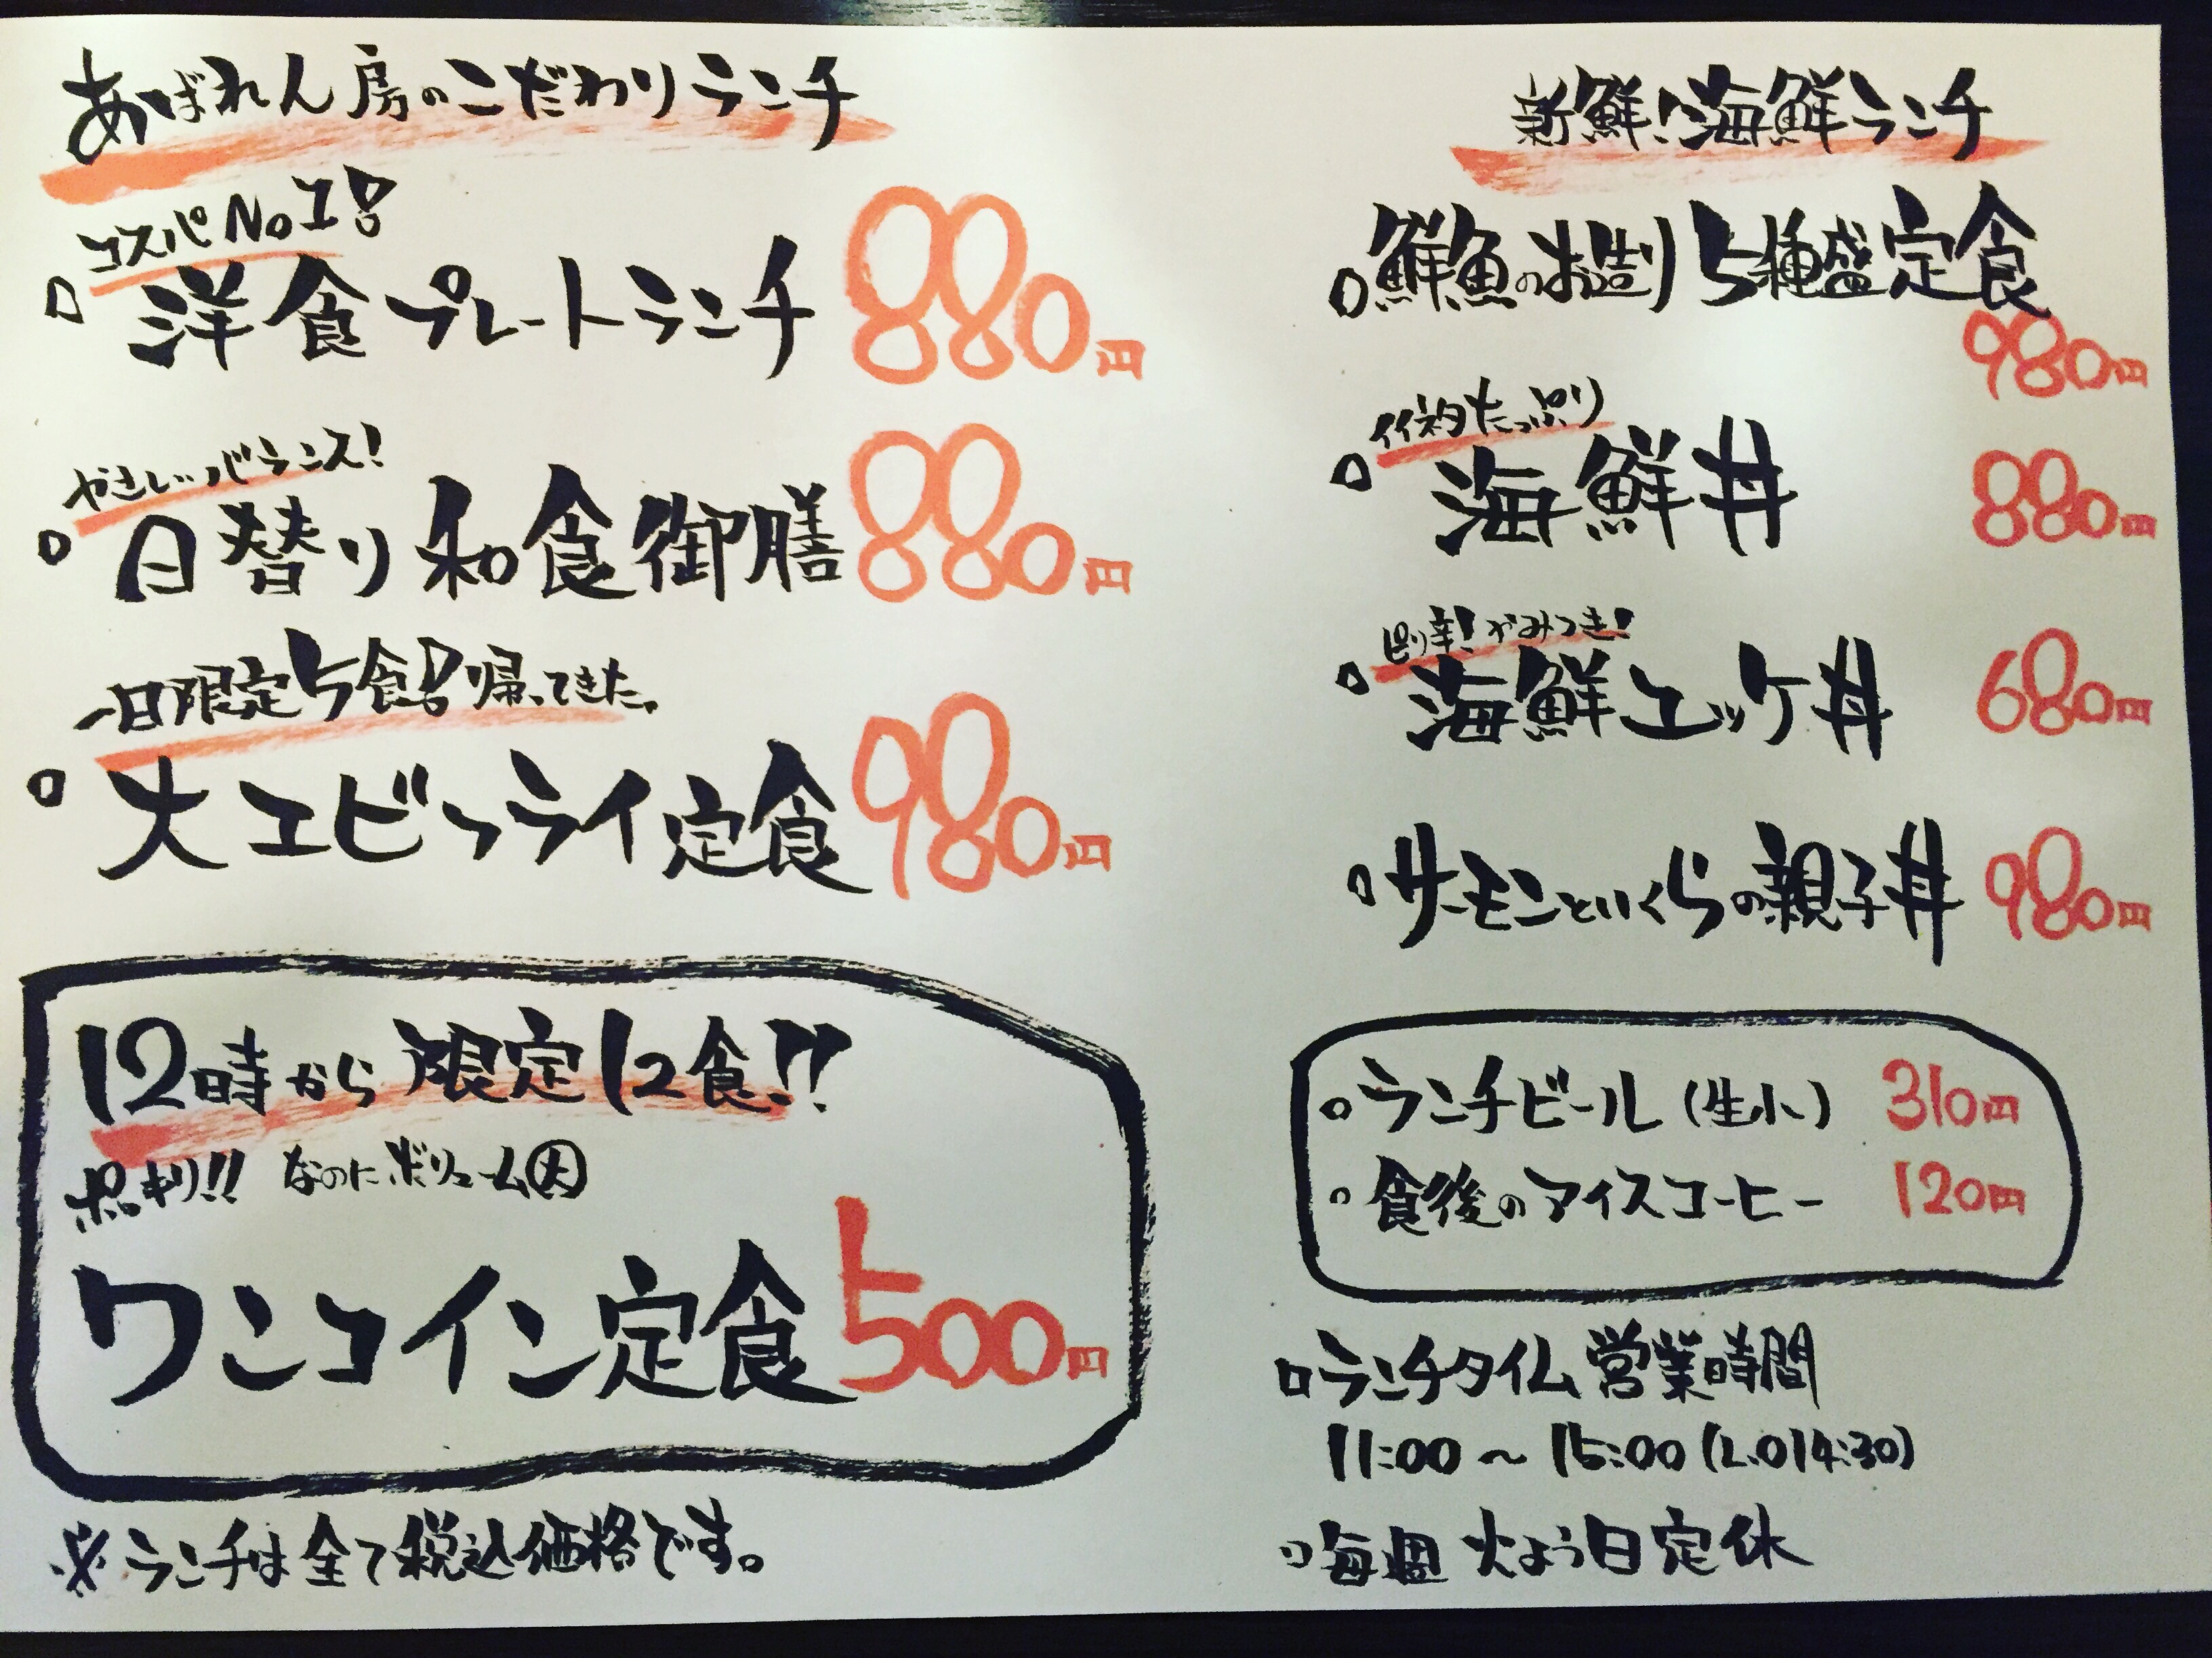 あばれん房のこだわりランチ
コスパNo1!
洋食プレートランチ 880円
やさしいバランス!
日替り和食御膳 880円
一日限定5食!帰ってきた
大エビフライ定食 980円
12時から限定12食!!
ポッキリ!! なのにボリューム大
ワンコイン定食 500円
※ランチは全て税込価格です。
新鮮!海鮮ランチ
鮮魚のお造り5種盛定食
980円
イイネタたっぷり
海鮮丼 880円
ピリ辛!やみつき!
海鮮ユッケ丼 680円
サーモンといくらの親子丼 980円
ランチビール(生小) 310円
食後のアイスコーヒー 120円
ランチタイム営業時間
11:00〜15:00(L.O14:30)
毎週火よう日定休